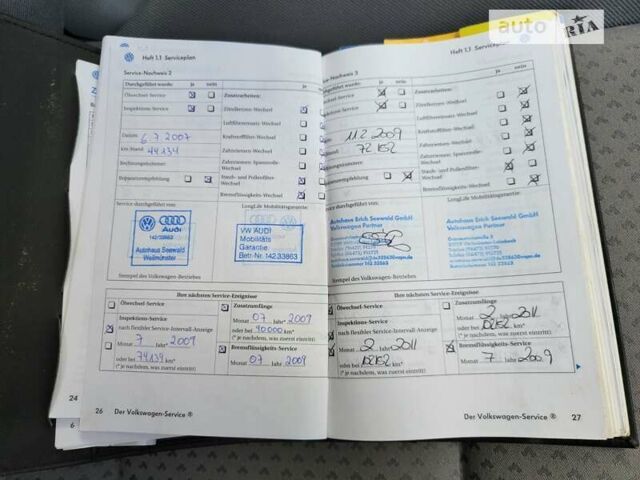 auto RIA
Heft 1.1 Serviceplan
Service-Nachweis 2
Durchgeführt wurde: ja nein ja
Ölwechsel-Service Zusatzarbeiten:
Inspektions-Service Zündkerzen-Wechsel
Luftfiltereinsatz-Wechsel
Datum 6.7.2007 Kraftstofffilter-Wechsel
km-Stand 44134 Zahnriemen-Wechsel
Rechnungsnummer Zahnriemen-Spannrolle-
Wechsel
Reparaturempfehlung Staub- und Pollenfilter-
Wechsel
Bremsflüssigkeits-Wechsel
Service durchgeführt von: LongLife Mobilitätsgarantie
Audi
142/33863
Autohaus Seewald
Weilmünster
VW AUDI
Mobilitäts
Garantie
Betr-Nr. 142 33863
Stempel des Volkswagen-Betriebes
Ihre nächsten Service-Ereignisse
Ölwechsel-Service Zusatzumfänge
Monat 07 Jahr* 2009
oder bei 90000 km*
(* je nachdem, was zuerst eintritt)
Inspektions-Service
nach flexibler Service-Intervall-Anzeige
Monat 7 Jahr* 2009
oder bei 74134 km*
(* je nachdem, was zuerst eintritt)
Bremsflüssigkeits-Service
Monat 07 Jahr 2009
24
6
26 Der Volkswagen-Service ®
Heft 1.1 Serviceplan
Service-Nachweis 3
ja nein ja nein
Zusatzarbeiten:
Zündkerzen-Wechsel
Luftfiltereinsatz-Wechsel
11.2.2009 Kraftstofffilter-Wechsel
72152 Zahnriemen-Wechsel
Zahnriemen-Spannrolle-
Wechsel
Staub- und Pollenfilter-
Wechsel
Bremsflüssigkeits-Wechsel
LongLife Mobilitätsgarantie
Autohaus Erich Seewald GmbH
Volkswagen Partner
Autohaus Erich Seewald GmbH
Volkswagen Partner
Stempel des Volkswagen-Betriebes
Ihre nächsten Service-Ereignisse
Ölwechsel-Service Zusatzumfänge
Monat 2 Jahr* 2011
(* je nachdem, was zuerst eintritt)
Inspektions-Service
nach flexibler Service-Intervall-Anzeige
Monat 2 Jahr* 2011
(* je nachdem, was zuerst eintritt)
Bremsflüssigkeits-Service
Monat 7 Jahr 2009
Der Volkswagen-Service ® 27